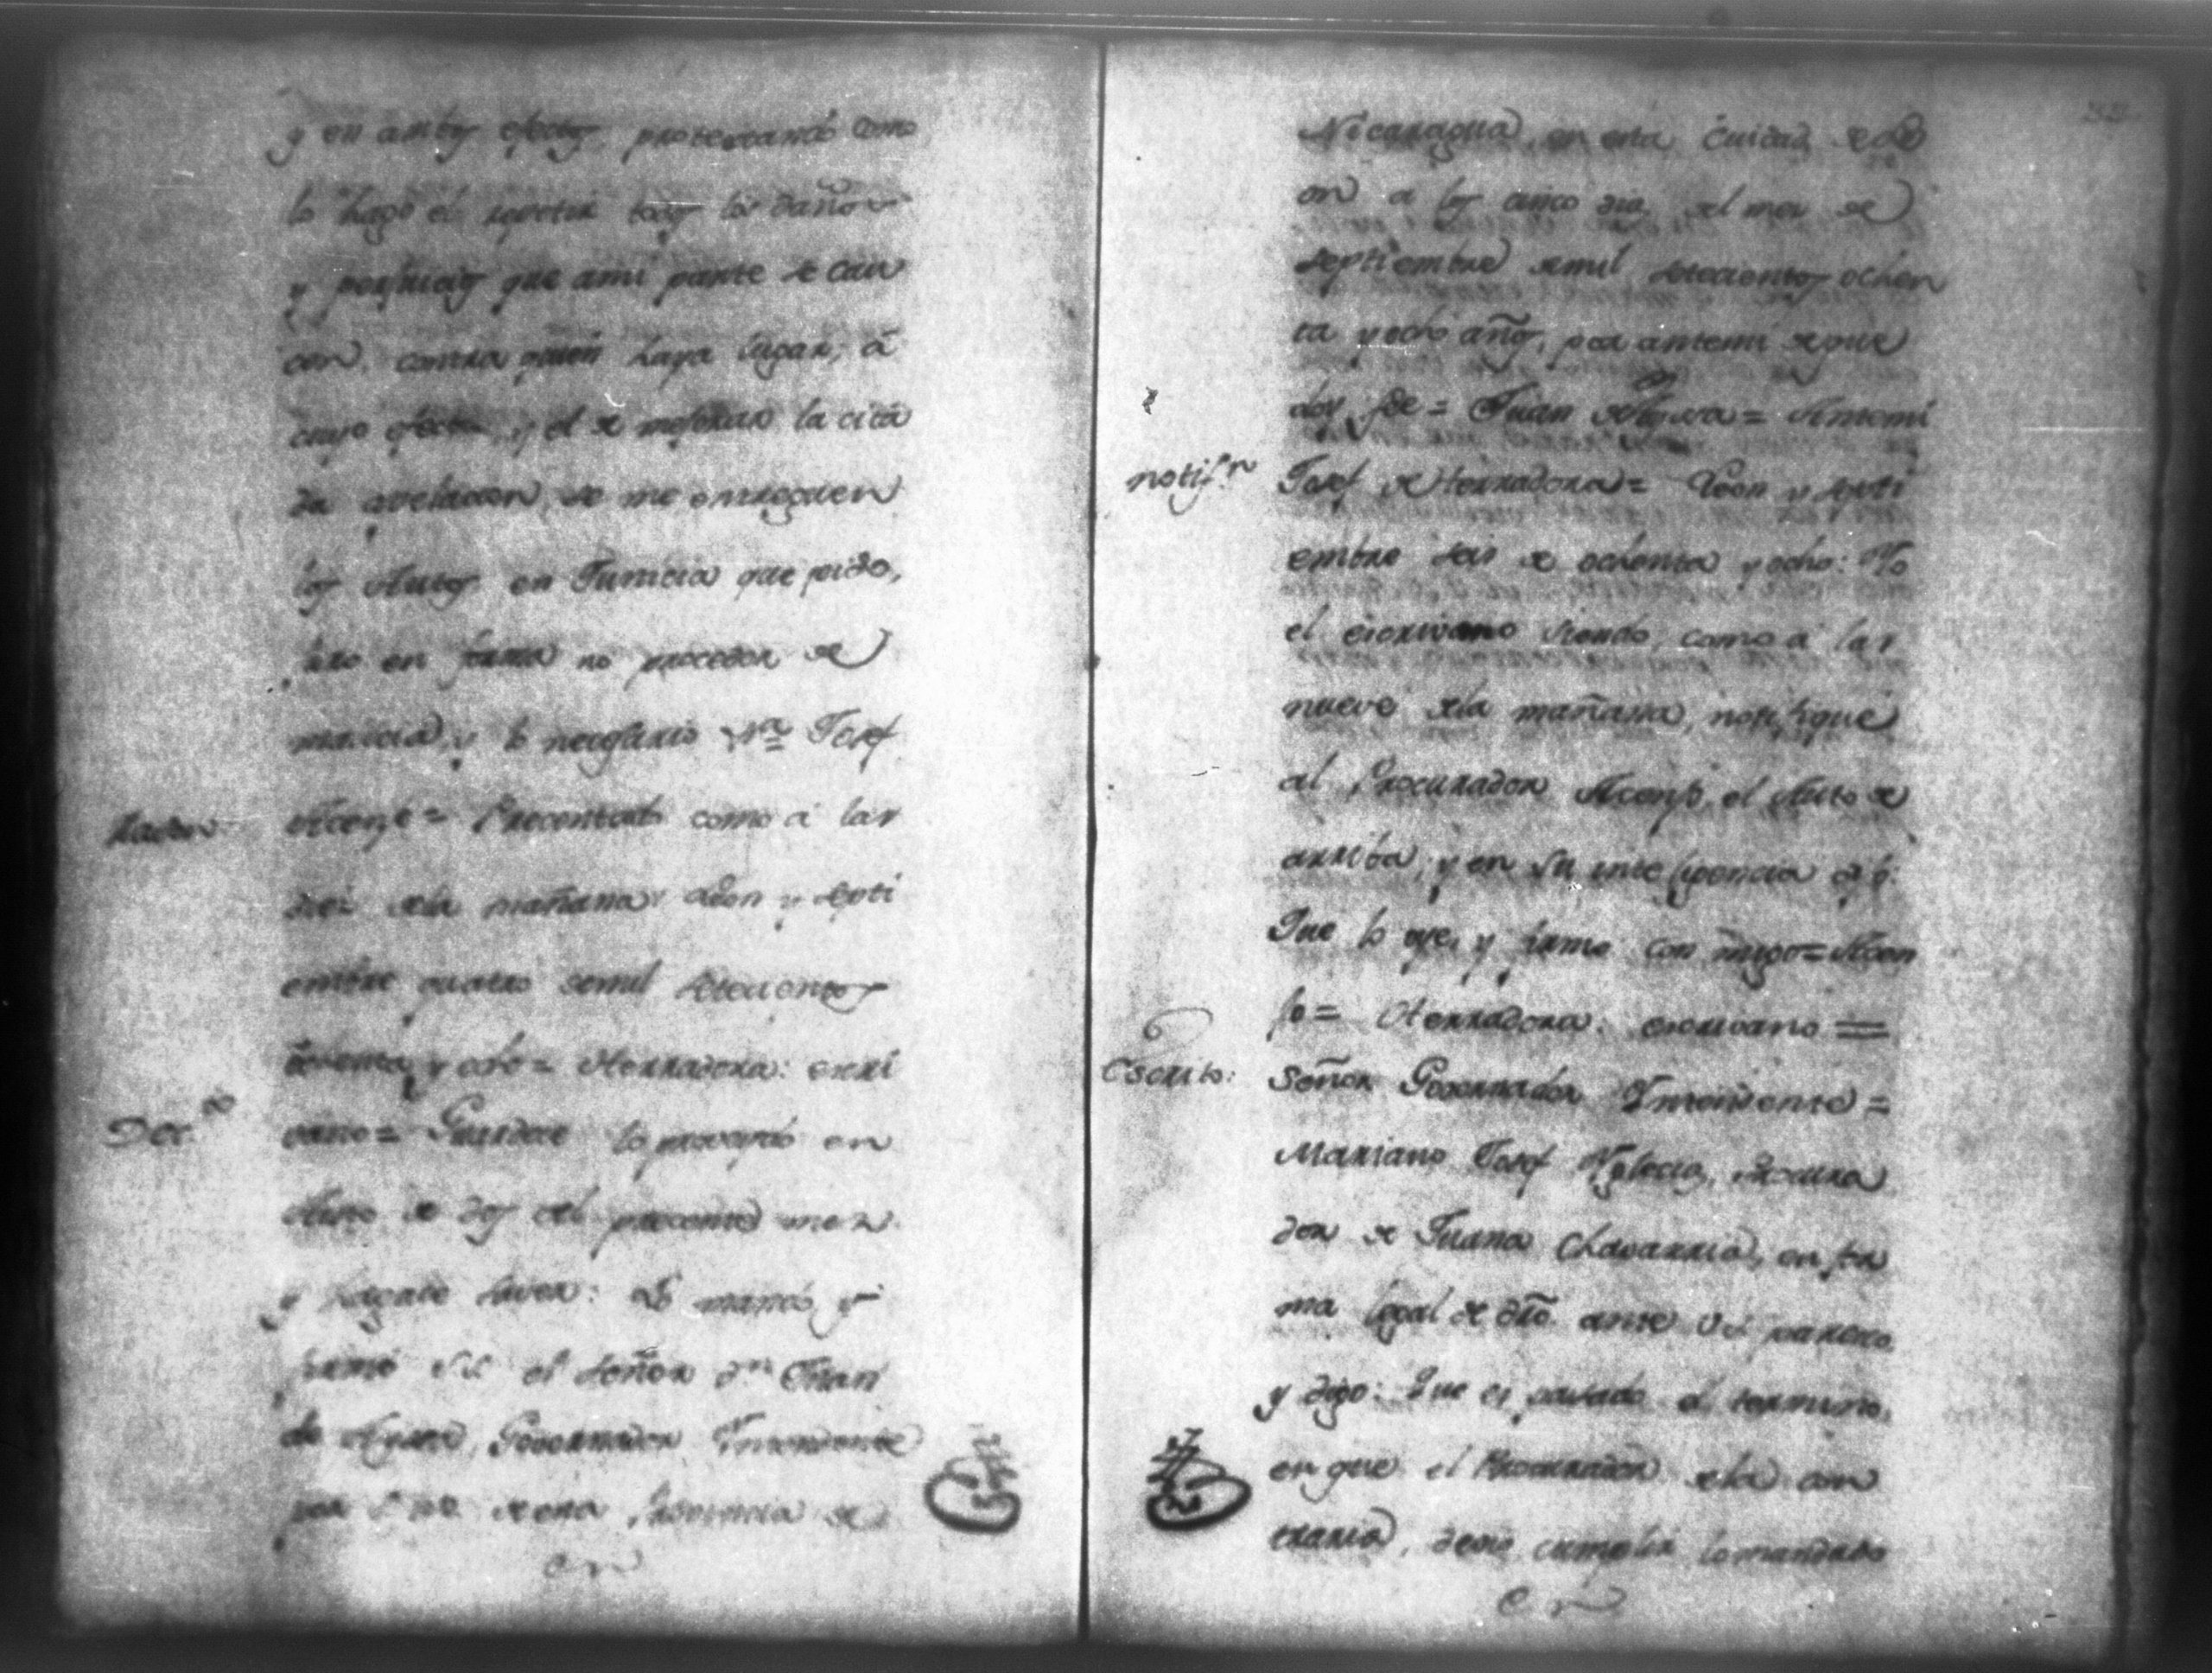 y en ambos efectos, protextando como
lo hago el repetir todos los daños
y perjuicios que ami parte se cau
cen contra quien haya lugar, á
cuyo efecto, y el de mejorar la cita
da apelacion, se me entreguen
los Autos en Justicia que pido,
juro en forma no proceder de
malicia, y lo nesesario Vª Josef
Acenjo= Presentado como a las
Razon
diez dela mañana Leon y Septi
embre quatro demil setecientos
ochenta y ocho= Herradora: escri
vano= Guardese lo proveydo en
Dec.to
Auto de dos del presente mes
y hagase saver: Lo mandó y
firmó Su el Señor dn Juan
de Ayssa, Governador Yntendente
por S M de esta Provincia de
Nicaragua, en esta Ciudad de Le
on a los cinco dias del mes de
Septiembre demil setecientos ochen
ta y ocho años, por antemi de que
doy fee= Juan de Ayssa= Antemi
notif.n
Josef de Herradora= Leon y Septi
embre seis de ochenta y ocho: Yo
el escrivano siendo como a las
nueve dela mañana, notifique
al Procurador Acenjo, el Auto de
arriba, y en su inteligencia dijo:
Que lo oye, y firmo con migo= Acen
jo= Herradora: escrivano =
Escrito:
Señor Governador Yntendente=
Mariano Josef Yglecias, Procura
dor de Juana Chavarria, en for
ma legal de dro. ante VS paresco
y digo: Que es pasado el termino,
en que el Procurador dela con
traria, devio cumplir lo mandado